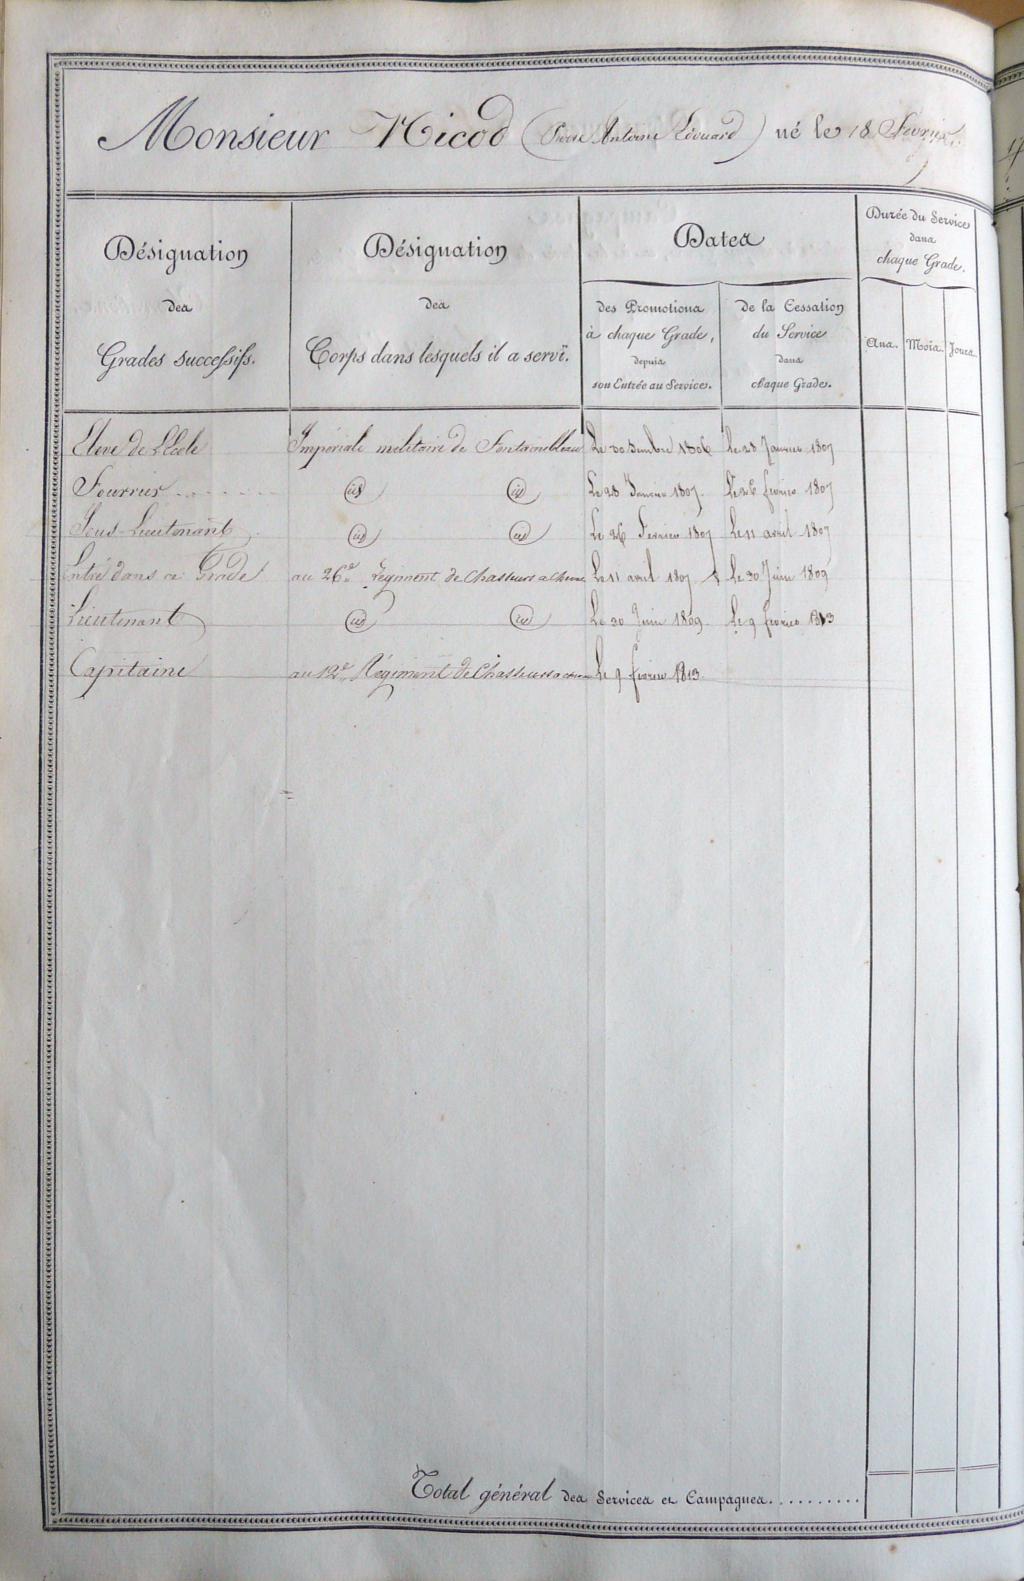 Monsieur Nicod (Pierre Antoine Edouard) né le 18 Février
Désignation
des
Grades successifs.
Désignation
des
Corps dans lesquels il a servi.
Dates
des Promotions
à chaque Grade,
depuis
son Entrée au Service.
de la Cessation
du Service
dans
chaque Grade.
Durée du Service
dans
chaque Grade.
Ans. Mois. Jours
Eleve de l'Ecole Impériale militaire de Fontainebleau Le 1806 Le 28 Janvier 1807
Fourrier id id Le 28 Janvier 1807. Le 26 février 1807
Sous-Lieutenant id id Le 26 Fevrier 1807 Le 11 avril 1807
Entré dans ce Grade au 26e Régiment de Chasseurs a Cheval Le 11 avril 1807 Le 30 Juin 1809
Lieutenant id id Le 30 Juin 1809. Le 9 fevrier 1813
Capitaine au 12e Régiment de Chasseurs a cheval Le 9 fevrier 1813.
Total général des Services et Campagnes..........